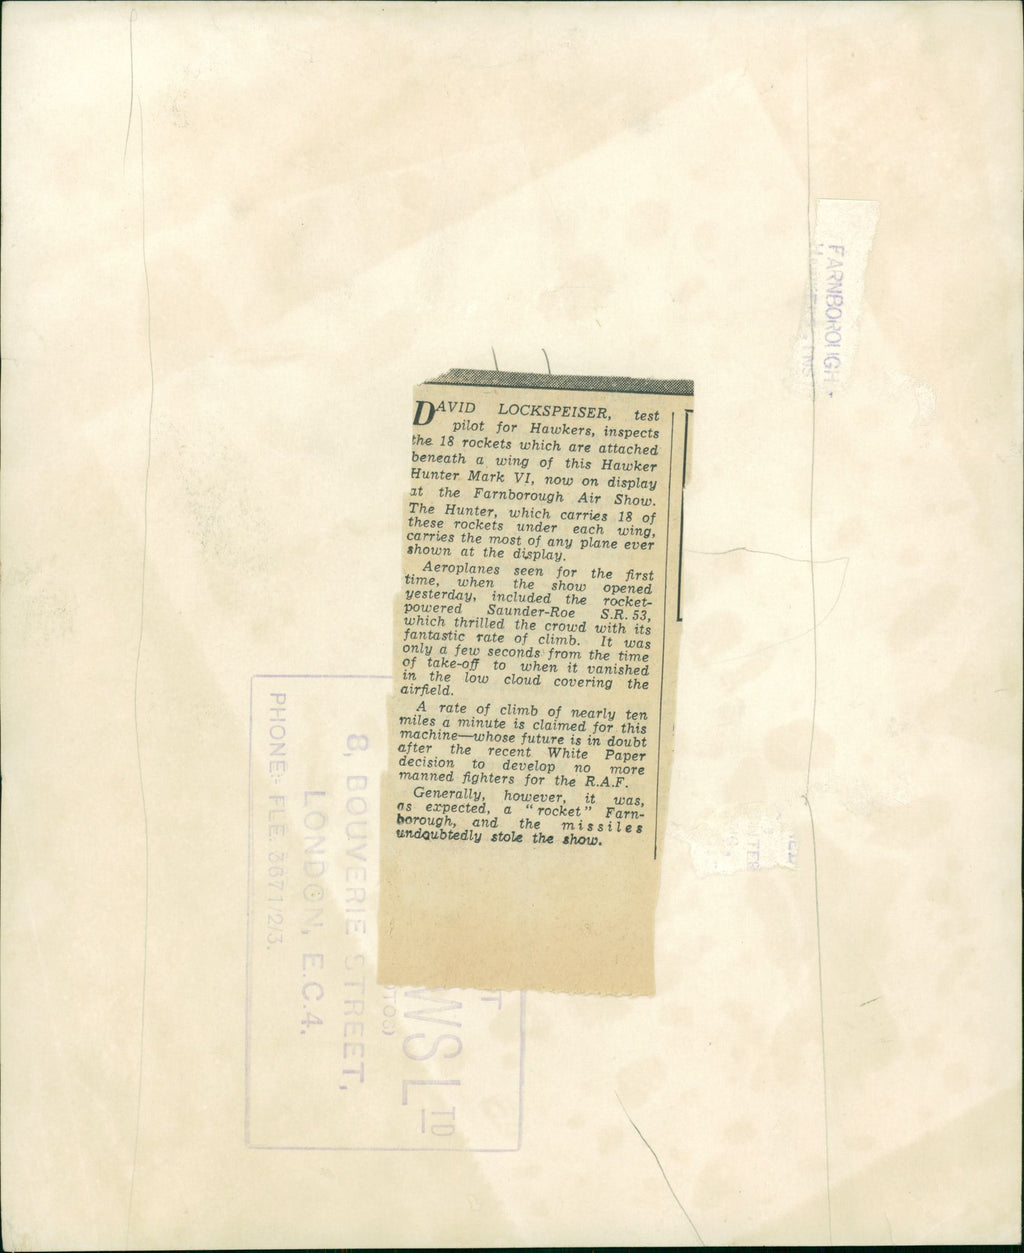 DAVID LOCKSPEISER, test
pilot for Hawkers, inspects
the 18 rockets which are attached
beneath a wing of this Hawker
Hunter Mark VI, now on display
at the Farnborough Air Show.
The Hunter, which carries 18 of
these rockets under each wing,
carries the most of any plane ever
shown at the display.
Aeroplanes seen for the first
time, when the show opened
yesterday, included the rocket-
powered Saunder-Roe S.R. 53,
which thrilled the crowd with its
fantastic rate of climb. It was
only a few seconds from the time
of take-off to when it vanished
in the low cloud covering the
airfield.
A rate of climb of nearly ten
miles a minute is claimed for this
machine—whose future is in doubt
after the recent White Paper
decision to develop no more
manned fighters for the R.A.F.
Generally, however, it was,
as expected, a "rocket" Farn-
borough, and the missiles
undoubtedly stole the show.
FARNBOROUGH
WS LTD
TOS)
8, BOUVERIE STREET,
LONDON, E.C.4.
PHONE:- FLE. 3671/2/3.